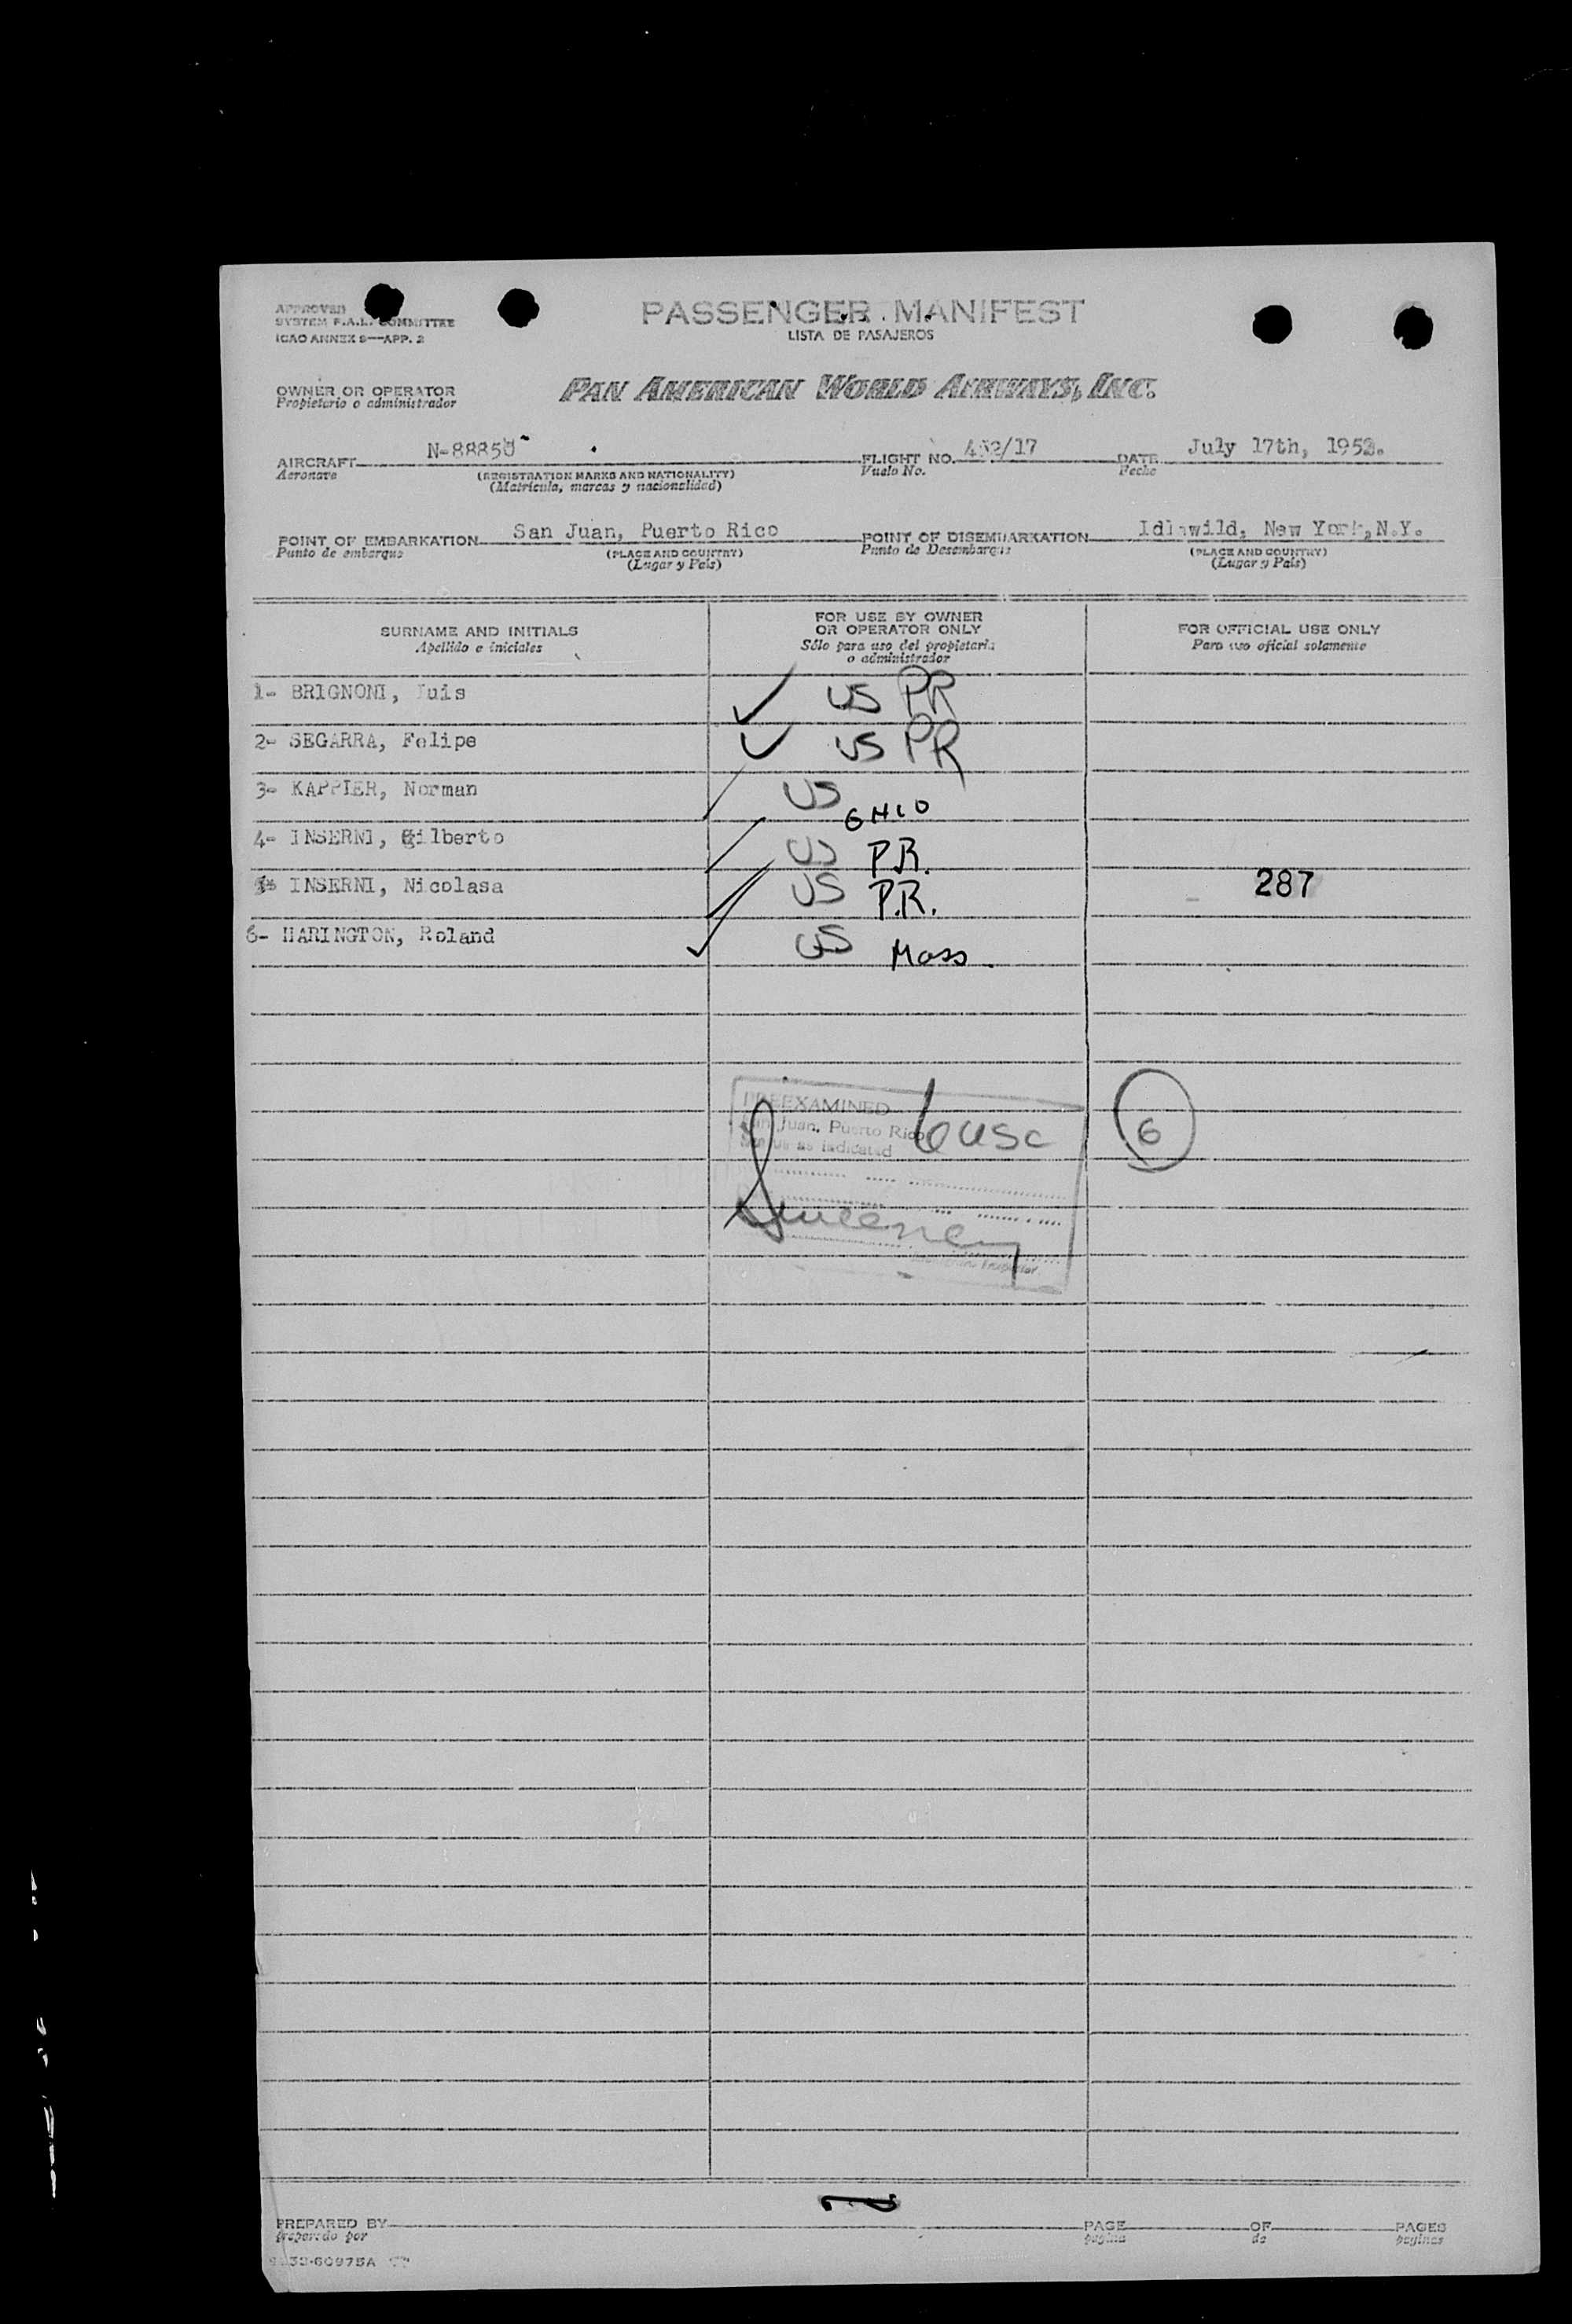 APPROVED
SYSTEM F.A.L. COMMITTEE
ICAO ANNEX 9—APP. 2
PASSENGER MANIFEST
LISTA DE PASAJEROS
OWNER OR OPERATOR
Propietario o administrador
PAN AMERICAN WORLD AIRWAYS, INC.
AIRCRAFT N-88850
Aeronave
(REGISTRATION MARKS AND NATIONALITY)
(Matrícula, marcas y nacionalidad)
FLIGHT NO. 452/17
Vuelo No.
DATE July 17th, 1952.
Fecha
POINT OF EMBARKATION San Juan, Puerto Rico
Punto de embarque
(PLACE AND COUNTRY)
(Lugar y País)
POINT OF DISEMBARKATION Idlewild, New York, N.Y.
Punto de Desembarque
(PLACE AND COUNTRY)
(Lugar y País)
SURNAME AND INITIALS
Apellido e iniciales
FOR USE BY OWNER
OR OPERATOR ONLY
Sólo para uso del propietario
o administrador
FOR OFFICIAL USE ONLY
Para uso oficial solamente
1- BRIGNONI, Luis US PR
2- SEGARRA, Felipe US PR
3- KAPPIER, Norman US OHIO
4- INSERNI, Gilberto US P.R.
5- INSERNI, Nicolasa US P.R. 287
6- HARINGTON, Roland US Mass.
PREEXAMINED
San Juan, Puerto Rico
Status as indicated
6 USC
6
Sweeney
Immigrant Inspector
PREPARED BY
preparado por
PAGE
pagina
OF
de
PAGES
paginas
60975A